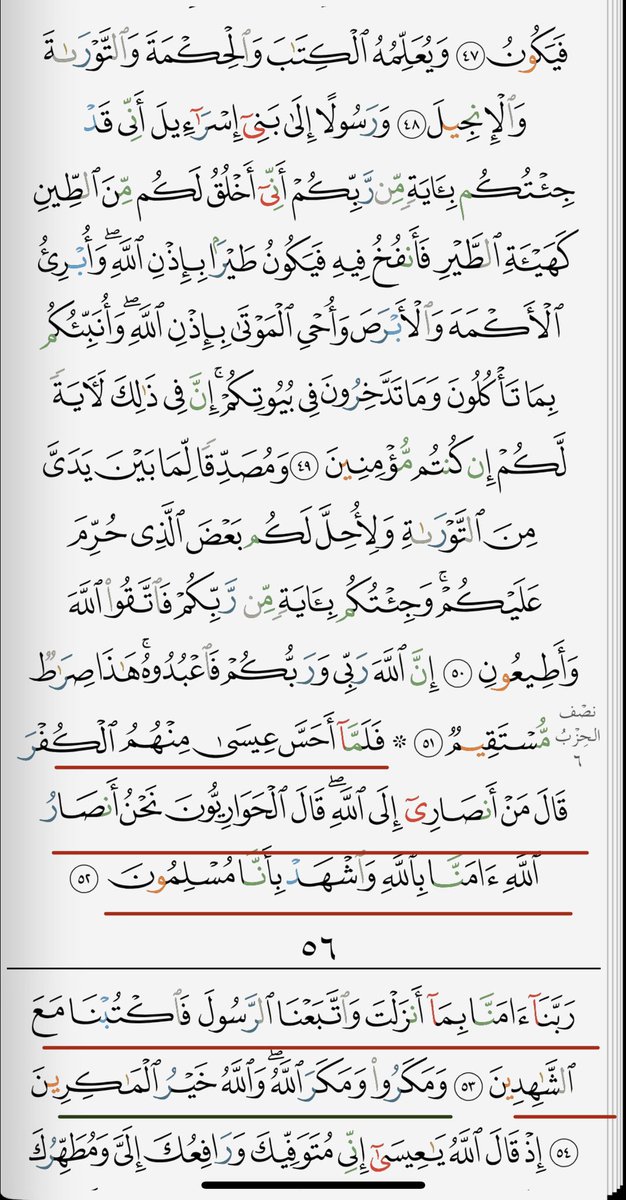 فَيَكُونُ ٤٧ وَيُعَلِّمُهُ ٱلْكِتَٰبَ وَٱلْحِكْمَةَ وَٱلتَّوْرَىٰةَ
وَٱلْإِنجِيلَ ٤٨ وَرَسُولًا إِلَىٰ بَنِىٓ إِسْرَٰٓءِيلَ أَنِّى قَدْ
جِئْتُكُم بِـَٔايَةٍ مِّن رَّبِّكُمْ أَنِّىٓ أَخْلُقُ لَكُم مِّنَ ٱلطِّينِ
كَهَيْـَٔةِ ٱلطَّيْرِ فَأَنفُخُ فِيهِ فَيَكُونُ طَيْرًۢا بِإِذْنِ ٱللَّهِ ۖ وَأُبْرِئُ
ٱلْأَكْمَهَ وَٱلْأَبْرَصَ وَأُحْىِ ٱلْمَوْتَىٰ بِإِذْنِ ٱللَّهِ ۖ وَأُنَبِّئُكُم
بِمَا تَأْكُلُونَ وَمَا تَدَّخِرُونَ فِى بُيُوتِكُمْ ۚ إِنَّ فِى ذَٰلِكَ لَـَٔايَةً
لَّكُمْ إِن كُنتُم مُّؤْمِنِينَ ٤٩ وَمُصَدِّقًا لِّمَا بَيْنَ يَدَىَّ
مِنَ ٱلتَّوْرَىٰةِ وَلِأُحِلَّ لَكُم بَعْضَ ٱلَّذِى حُرِّمَ
عَلَيْكُمْ ۚ وَجِئْتُكُم بِـَٔايَةٍ مِّن رَّبِّكُمْ فَٱتَّقُوا۟ ٱللَّهَ
وَأَطِيعُونِ ٥٠ إِنَّ ٱللَّهَ رَبِّى وَرَبُّكُمْ فَٱعْبُدُوهُ ۚ هَٰذَا صِرَٰطٌ
مُّسْتَقِيمٌ ٥١ ۞ فَلَمَّآ أَحَسَّ عِيسَىٰ مِنْهُمُ ٱلْكُفْرَ
نصف
الحزب
٦
قَالَ مَنْ أَنصَارِىٓ إِلَى ٱللَّهِ ۖ قَالَ ٱلْحَوَارِيُّونَ نَحْنُ أَنصَارُ
ٱللَّهِ ءَامَنَّا بِٱللَّهِ وَٱشْهَدْ بِأَنَّا مُسْلِمُونَ ٥٢
٥٦
رَبَّنَآ ءَامَنَّا بِمَآ أَنزَلْتَ وَٱتَّبَعْنَا ٱلرَّسُولَ فَٱكْتُبْنَا مَعَ
ٱلشَّٰهِدِينَ ٥٣ وَمَكَرُوا۟ وَمَكَرَ ٱللَّهُ ۖ وَٱللَّهُ خَيْرُ ٱلْمَٰكِرِينَ
٥٤ إِذْ قَالَ ٱللَّهُ يَٰعِيسَىٰٓ إِنِّى مُتَوَفِّيكَ وَرَافِعُكَ إِلَىَّ وَمُطَهِّرُكَ